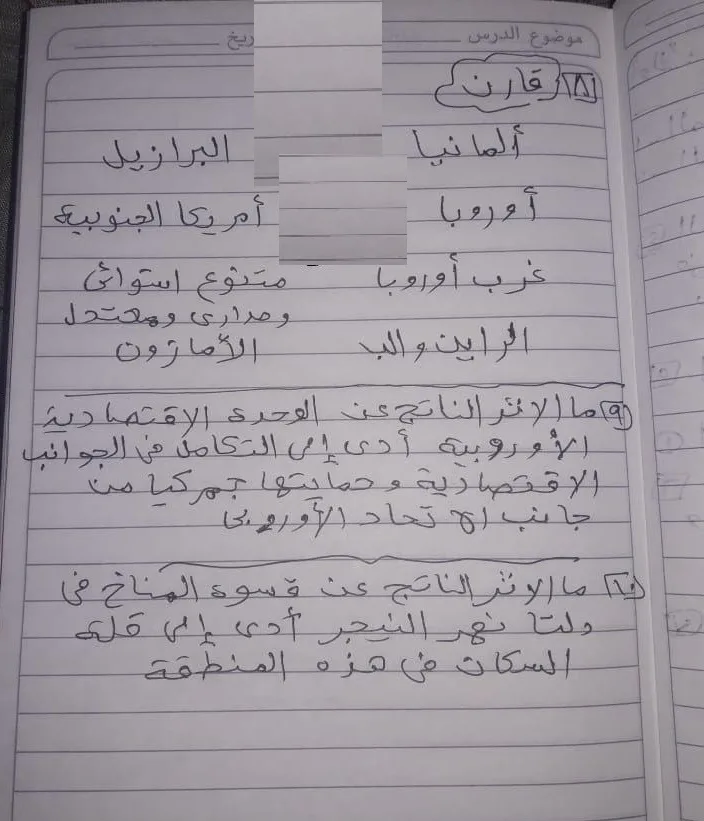 موضوع الدرس ريخ
٨ قارن
ألمانيا البرازيل
أوروبا أمريكا الجنوبية
غرب أوروبا متنوع استوائى
ومدارى ومعتدل
الراين والب الأمازون
٩ ما الاثر الناتج عن الوحدة الاقتصادية
الأوروبية أدى إلى التكامل فى الجوانب
الاقتصادية وحمايتها جمركيا من
جانب الاتحاد الأوروبى
١٠ ما الاثر الناتج عن قسوة المناخ فى
دلتا نهر النيجر أدى إلى قلة
السكان فى هذه المنطقة